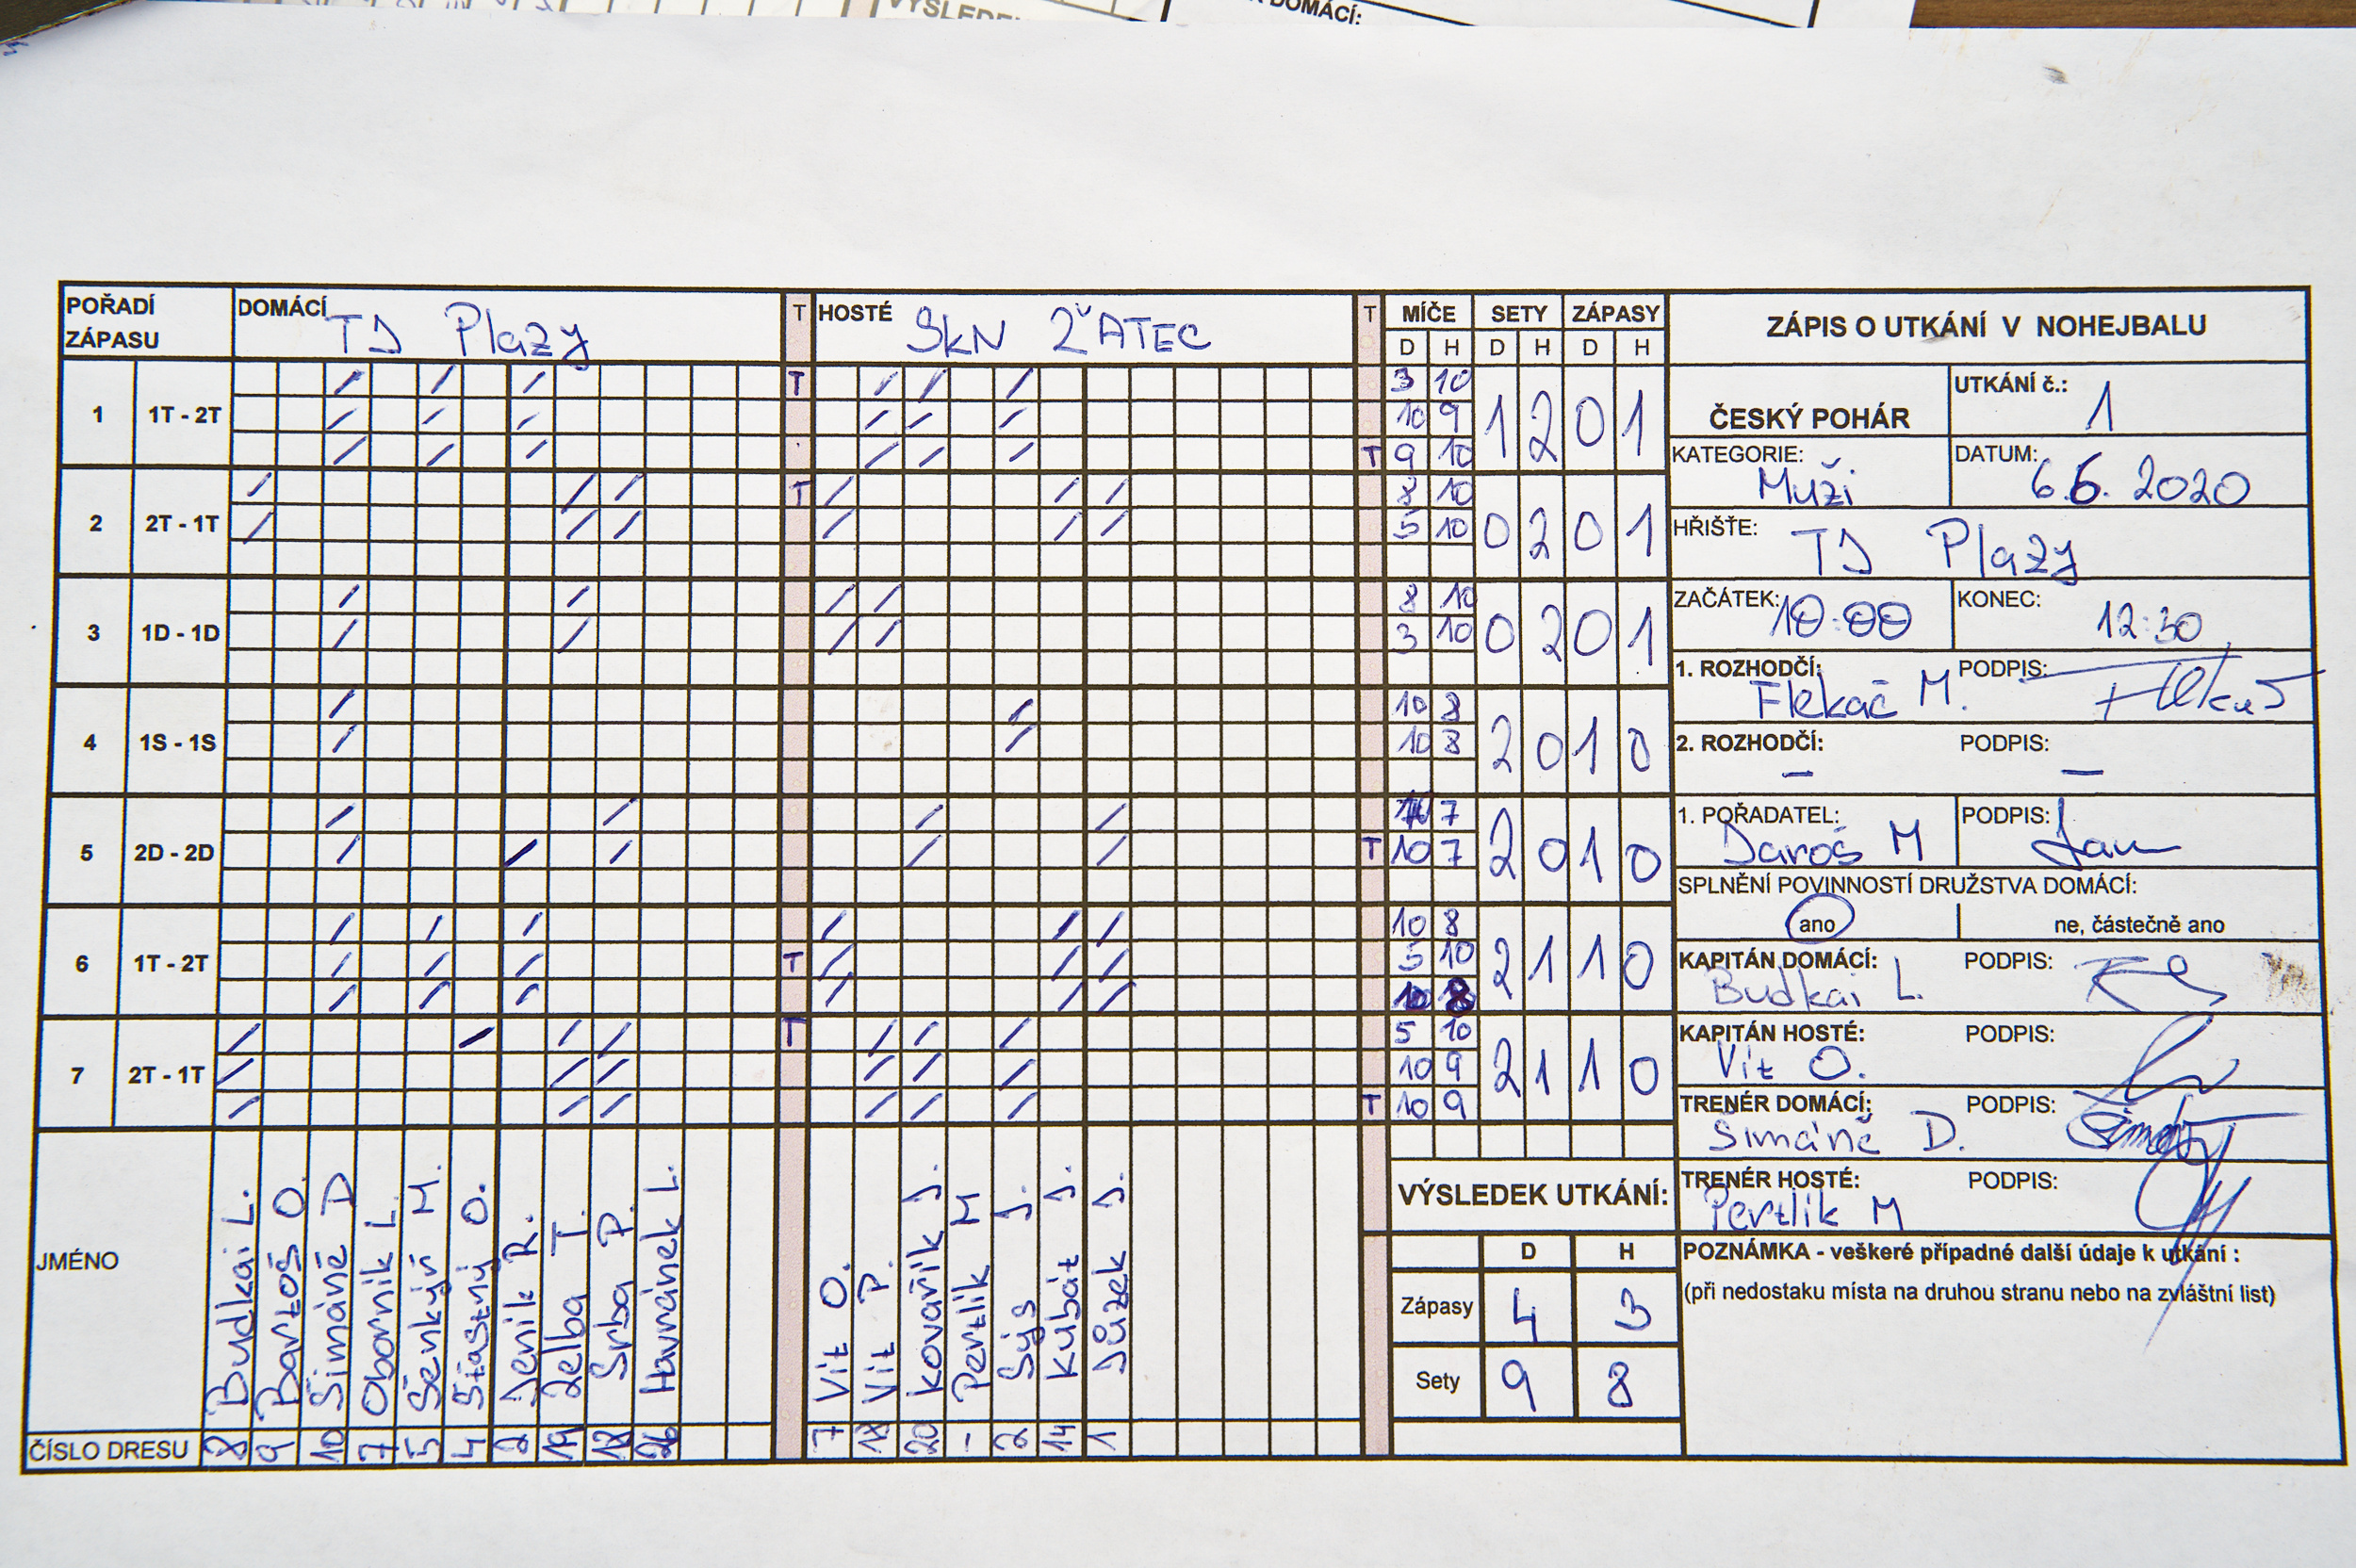 VÝSLEDEK
DOMÁCÍ:
POŘADÍ ZÁPASU
DOMÁCÍ TJ Plazy
T
HOSTÉ SKN ŽATEC
T
MÍČE SETY ZÁPASY
D H D H D H
1 1T - 2T T 3 10 1 2 0 1
10 9
T 9 10
2 2T - 1T T 8 10 0 2 0 1
5 10
3 1D - 1D 8 10 0 2 0 1
3 10
4 1S - 1S 10 8 2 0 1 0
10 8
5 2D - 2D 7 2 0 1 0
T 10 7
6 1T - 2T 10 8 2 1 1 0
T 5 10
10 8
7 2T - 1T T 5 10 2 1 1 0
10 9
T 10 9
JMÉNO
Budkai L.
Bartoš O.
Šimáně D
Oborník L.
Šenkýři M.
Šťastný O.
Jeník R.
Zelba T.
Srba P.
Havránek L.
Vít O.
Vít P.
Kovařík J.
Pertlík M
Sýs J.
Kubát J.
Jůzek J.
ČÍSLO DRESU 8 9 10 7 5 4 2 19 18 26 7 18 20 - 2 14 1
VÝSLEDEK UTKÁNÍ:
D H
Zápasy 4 3
Sety 9 8
ZÁPIS O UTKÁNÍ V NOHEJBALU
ČESKÝ POHÁR
UTKÁNÍ č.: 1
KATEGORIE: Muži
DATUM: 6.6. 2020
HŘIŠŤE: TJ Plazy
ZAČÁTEK: 10:00 KONEC: 12:30
1. ROZHODČÍ: Flekač M. PODPIS:
2. ROZHODČÍ: — PODPIS: —
1. POŘADATEL: Daroš M PODPIS:
SPLNĚNÍ POVINNOSTÍ DRUŽSTVA DOMÁCÍ:
ano ne, částečně ano
KAPITÁN DOMÁCÍ: Budkai L. PODPIS:
KAPITÁN HOSTÉ: Vít O. PODPIS:
TRENÉR DOMÁCÍ: Šimáně D. PODPIS:
TRENÉR HOSTÉ: Pertlík M PODPIS:
POZNÁMKA - veškeré případné další údaje k utkání :
(při nedostaku místa na druhou stranu nebo na zvláštní list)